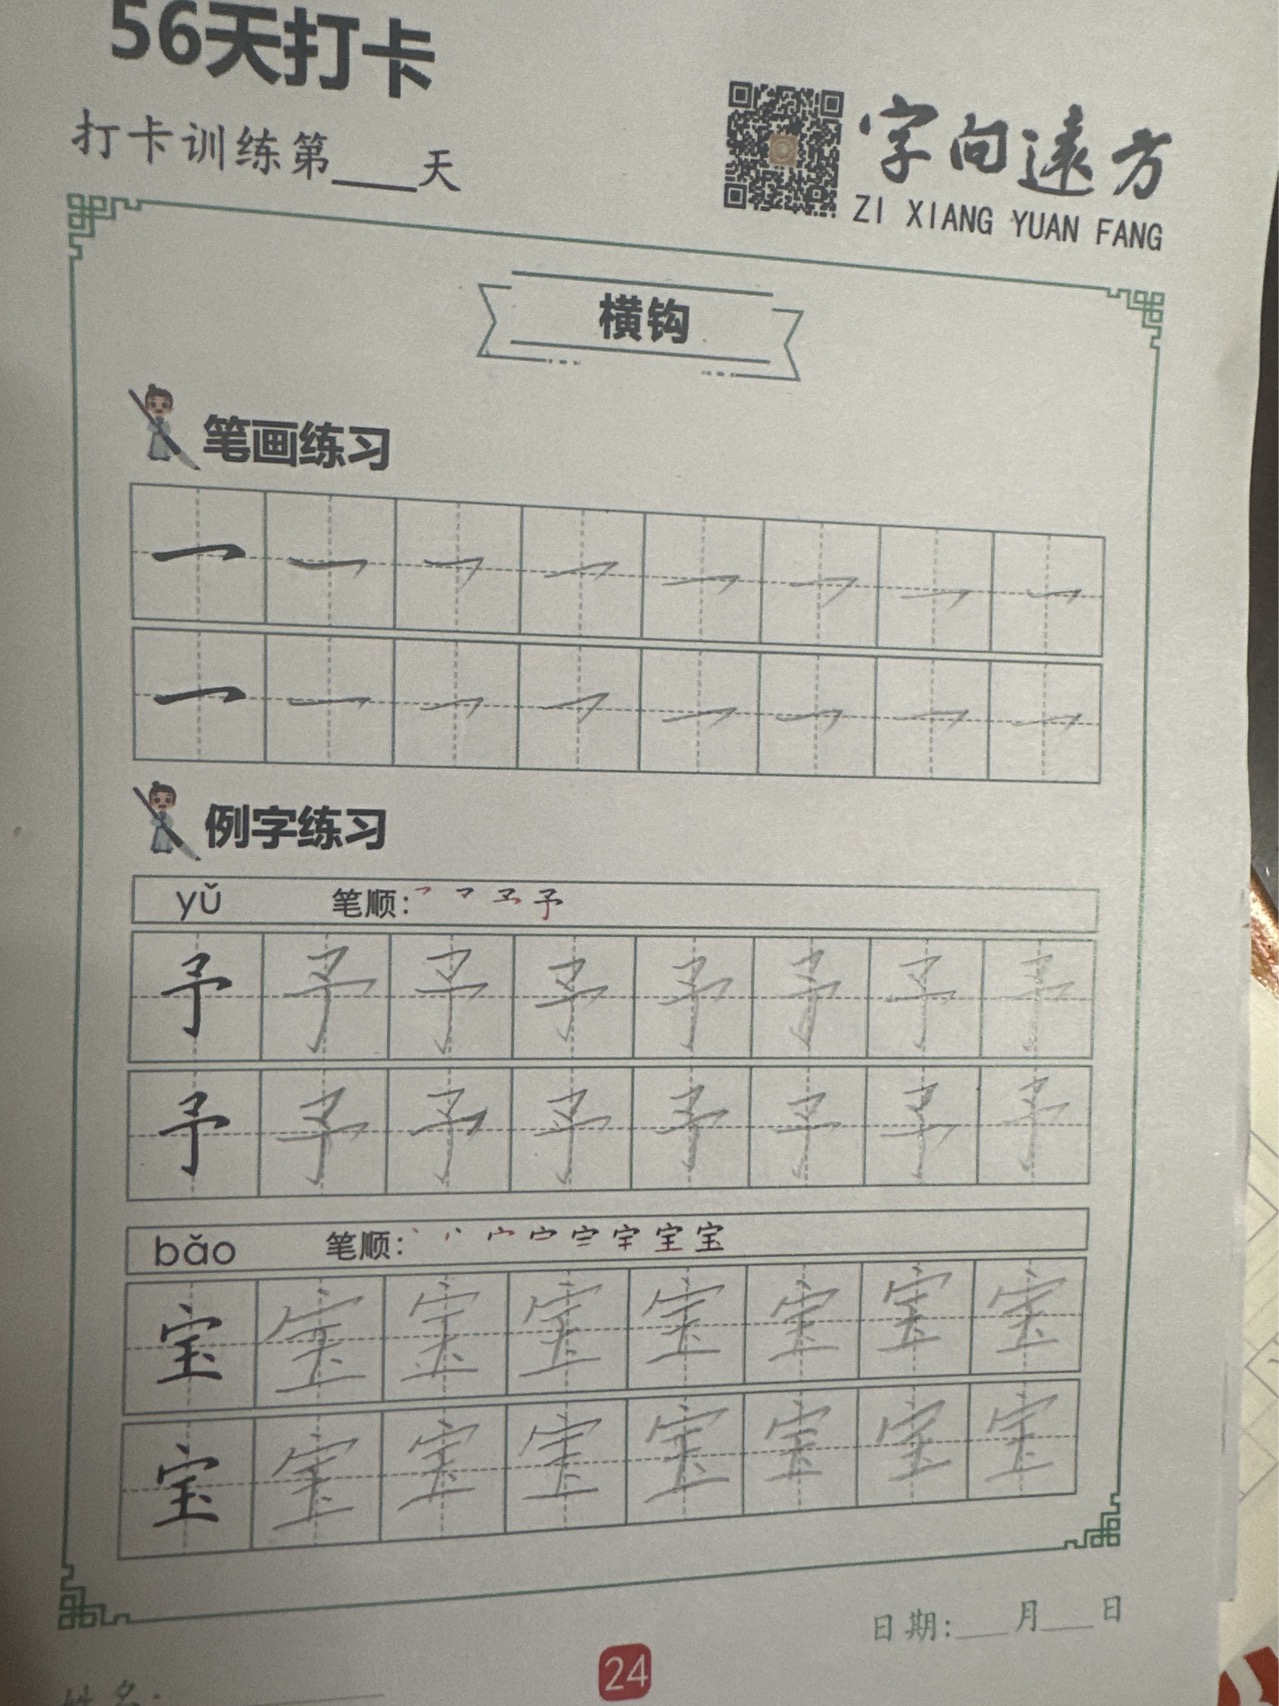 56天打卡
打卡训练第___天
字向遠方
ZI XIANG YUAN FANG
横钩
笔画练习
例字练习
yǔ 笔顺:
予 予 予 予 予 予 予 予
予 予 予 予 予 予 予 予
bǎo 笔顺:
宝 宝 宝 宝 宝 宝 宝 宝
宝 宝 宝 宝 宝 宝 宝 宝
日期:___月___日
24
姓名: